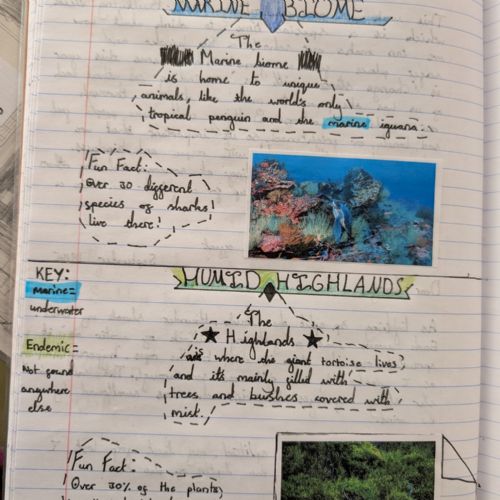 MARINE BIOME
The
Marine biome
is home to unique
animals, like the world's only
tropical penguin and the marine iguana.
Fun Fact:
Over 30 different
species of sharks
live there!
KEY:
marine=
underwater
Endemic=
Not found
anywhere
else
HUMID HIGHLANDS
The
Highlands
is where the giant tortoise lives
and it's mainly filled with
trees and bushes covered with
mist.
Fun Fact:
Over 30% of the plants